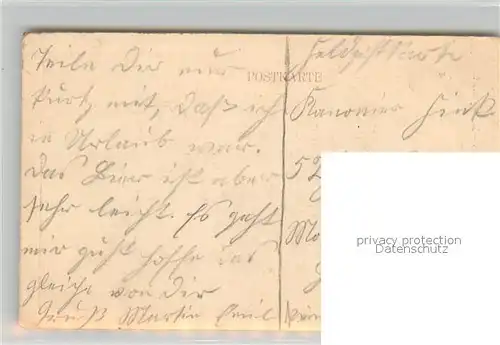 Teile Dir nur
kurz mit, daß ich
in Urlaub war.
Das Bier ist aber
sehr leicht. Es geht
mir gut hoffe das
gleiche von Dir
Gruß Martin Emil
POSTKARTE
Feldpostkarte
Kanonier
52
privacy protection
Datenschutz